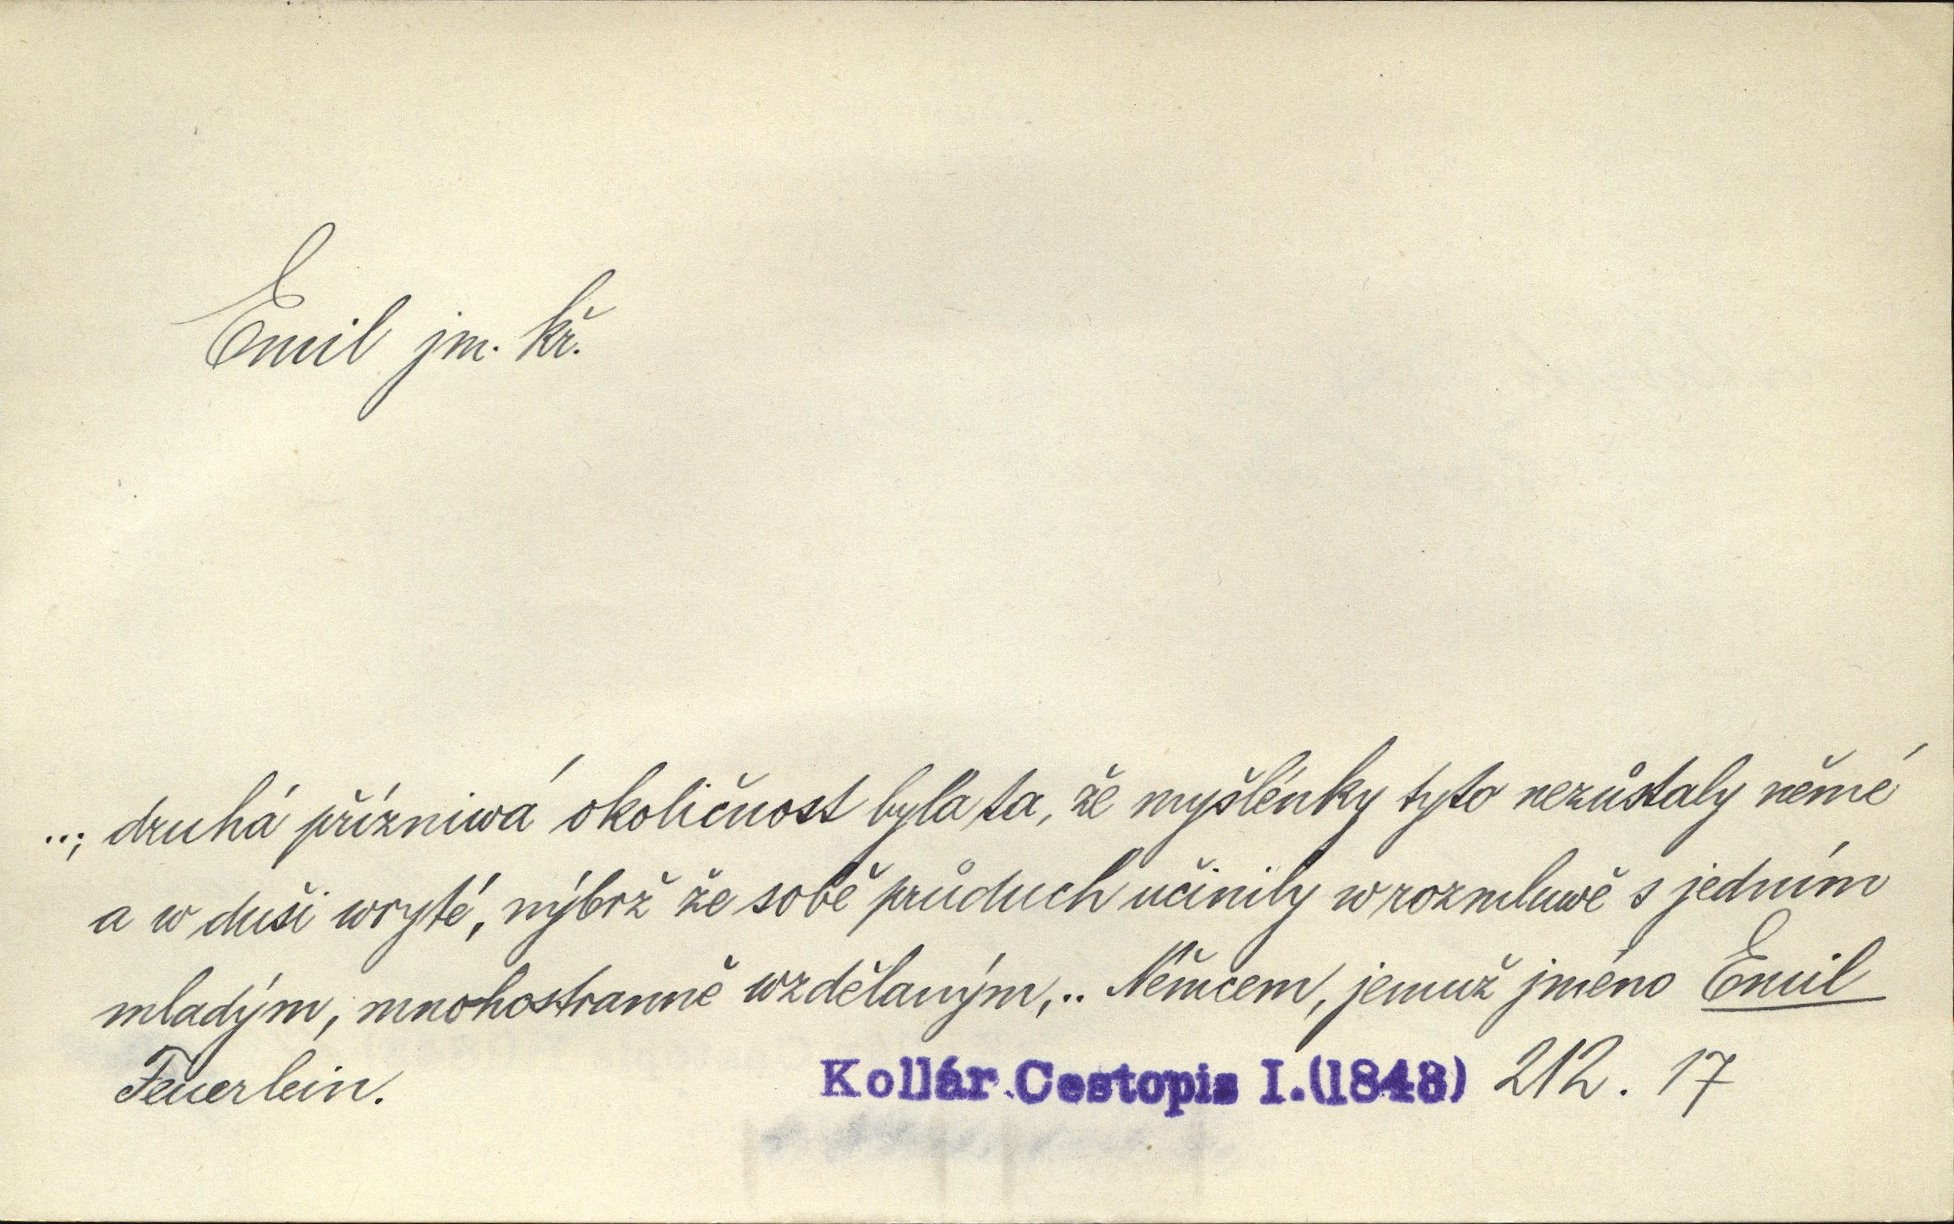 Emil jm. kř.
..; druhá přízniwá okoličnost byla ta, že myšlénky tyto nezůstaly němé
a w duši wryté, nýbrž že sobě průduch učinily w rozmluwě s jedním
mladým, mnohostranně wzdělaným,.. Němcem, jemuž jméno Emil
Feuerlein. Kollár Cestopis I.(1843) 212. 17